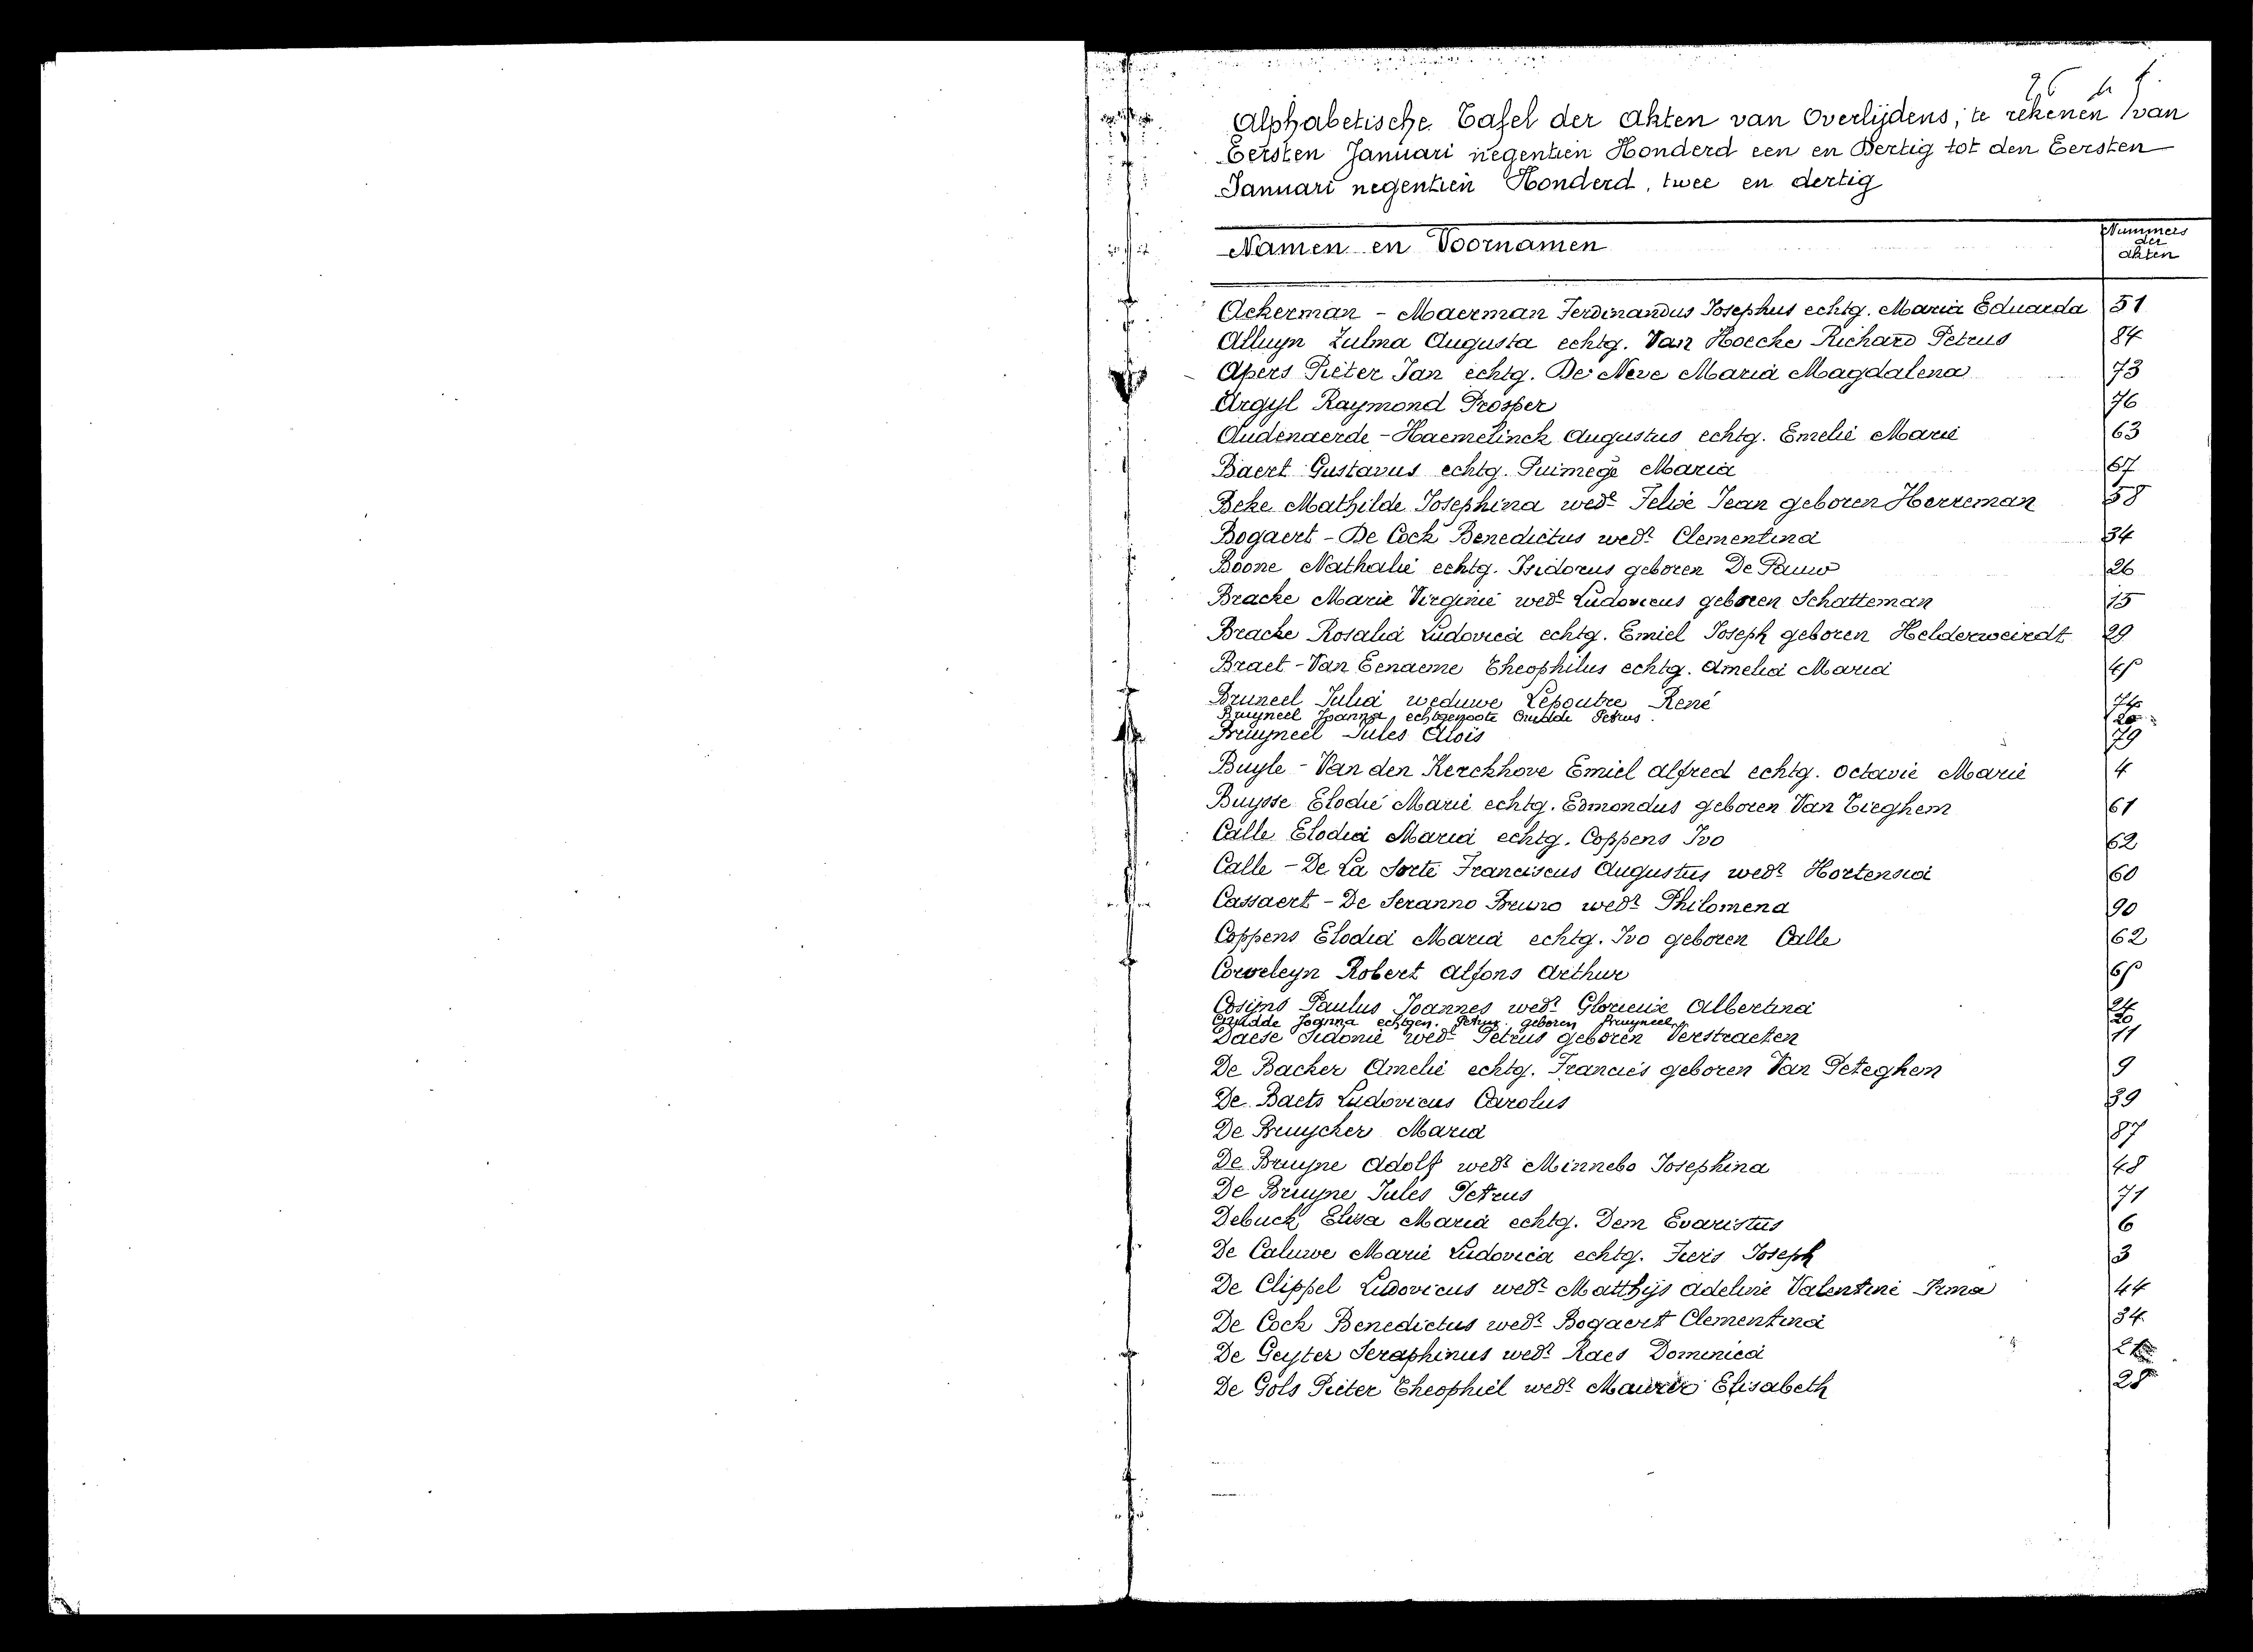 Alphabetische Tafel der akten van Overlijdens; te rekenen van
Eersten Januari negentien Honderd een en Dertig tot den Eersten
Januari negentien Honderd, twee en dertig
Namen en Voornamen Nummers der akten
Ackerman - Maerman Ferdinandus Josephus echtg. Maria Eduarda 51
Alluyn Zulma Augusta echtg. Van Hoecke Richard Petrus 84
Apers Pieter Jan echtg. De Neve Maria Magdalena 73
Argyl Raymond Prosper 76
Audenaerde - Haemelinck Augustus echtg. Emelie Marie 63
Baert Gustavus echtg. Puimege Maria 67
Beke Mathilde Josephina wedᵉ Felix Jean geboren Herreman 58
Bogaert - De Cock Benedictus wedʳ Clementina 34
Boone Nathalie echtg. Isidorus geboren De Pauw 26
Bracke Marie Virginie wedᵉ Ludovicus geboren Schatteman 15
Bracke Rosalia Ludovica echtg. Emiel Joseph geboren Helderweirdt 29
Braet - Van Eenaeme Theophilus echtg. Amelia Maria
Bruneel Julia weduwe Lepoutre René
Bruyneel Joanna echtgenoote Crudde Petrus 20
Bruyneel Jules Aloïs 79
Buyle - Van den Kerckhove Emiel alfred echtg. octavie Marie 4
Buysse Elodie Marie echtg. Edmondus geboren Van Tieghem 61
Calle Elodia Maria echtg. Coppens Ivo 62
Calle - De La Sorte Franciscus Augustus wedʳ Hortensia 60
Cassaert - De Seranno Bruno wedʳ Philomena 90
Coppens Elodia Maria echtg. Ivo geboren Calle 62
Corveleyn Robert Alfons Arthur
Cosijns Paulus Joannes wedʳ Glorieux Albertina 24
Crudde Joanna echtgen. Petrus geboren Bruyneel 20
Daese Sidonie wedᵉ Petrus geboren Verstraeten 11
De Backer Amelie echtg. Francies geboren Van Peteghem 9
De Baets Ludovicus Carolus 39
De Bruycker Maria 87
De Bruyne Adolf wedʳ Minnebo Josephina 48
De Bruyne Jules Petrus 71
Debuck Elisa Maria echtg. Dem Evaristus 6
De Caluwe Marie Ludovica echtg. Joseph 3
De Clippel Ludovicus wedʳ Matthijs Adeline Valentine Irma 44
De Cock Benedictus wedʳ Bogaert Clementina 34
De Geyter Seraphinus wedʳ Raes Dominica
De Gols Pieter Theophiel wedʳ Elisabeth 28